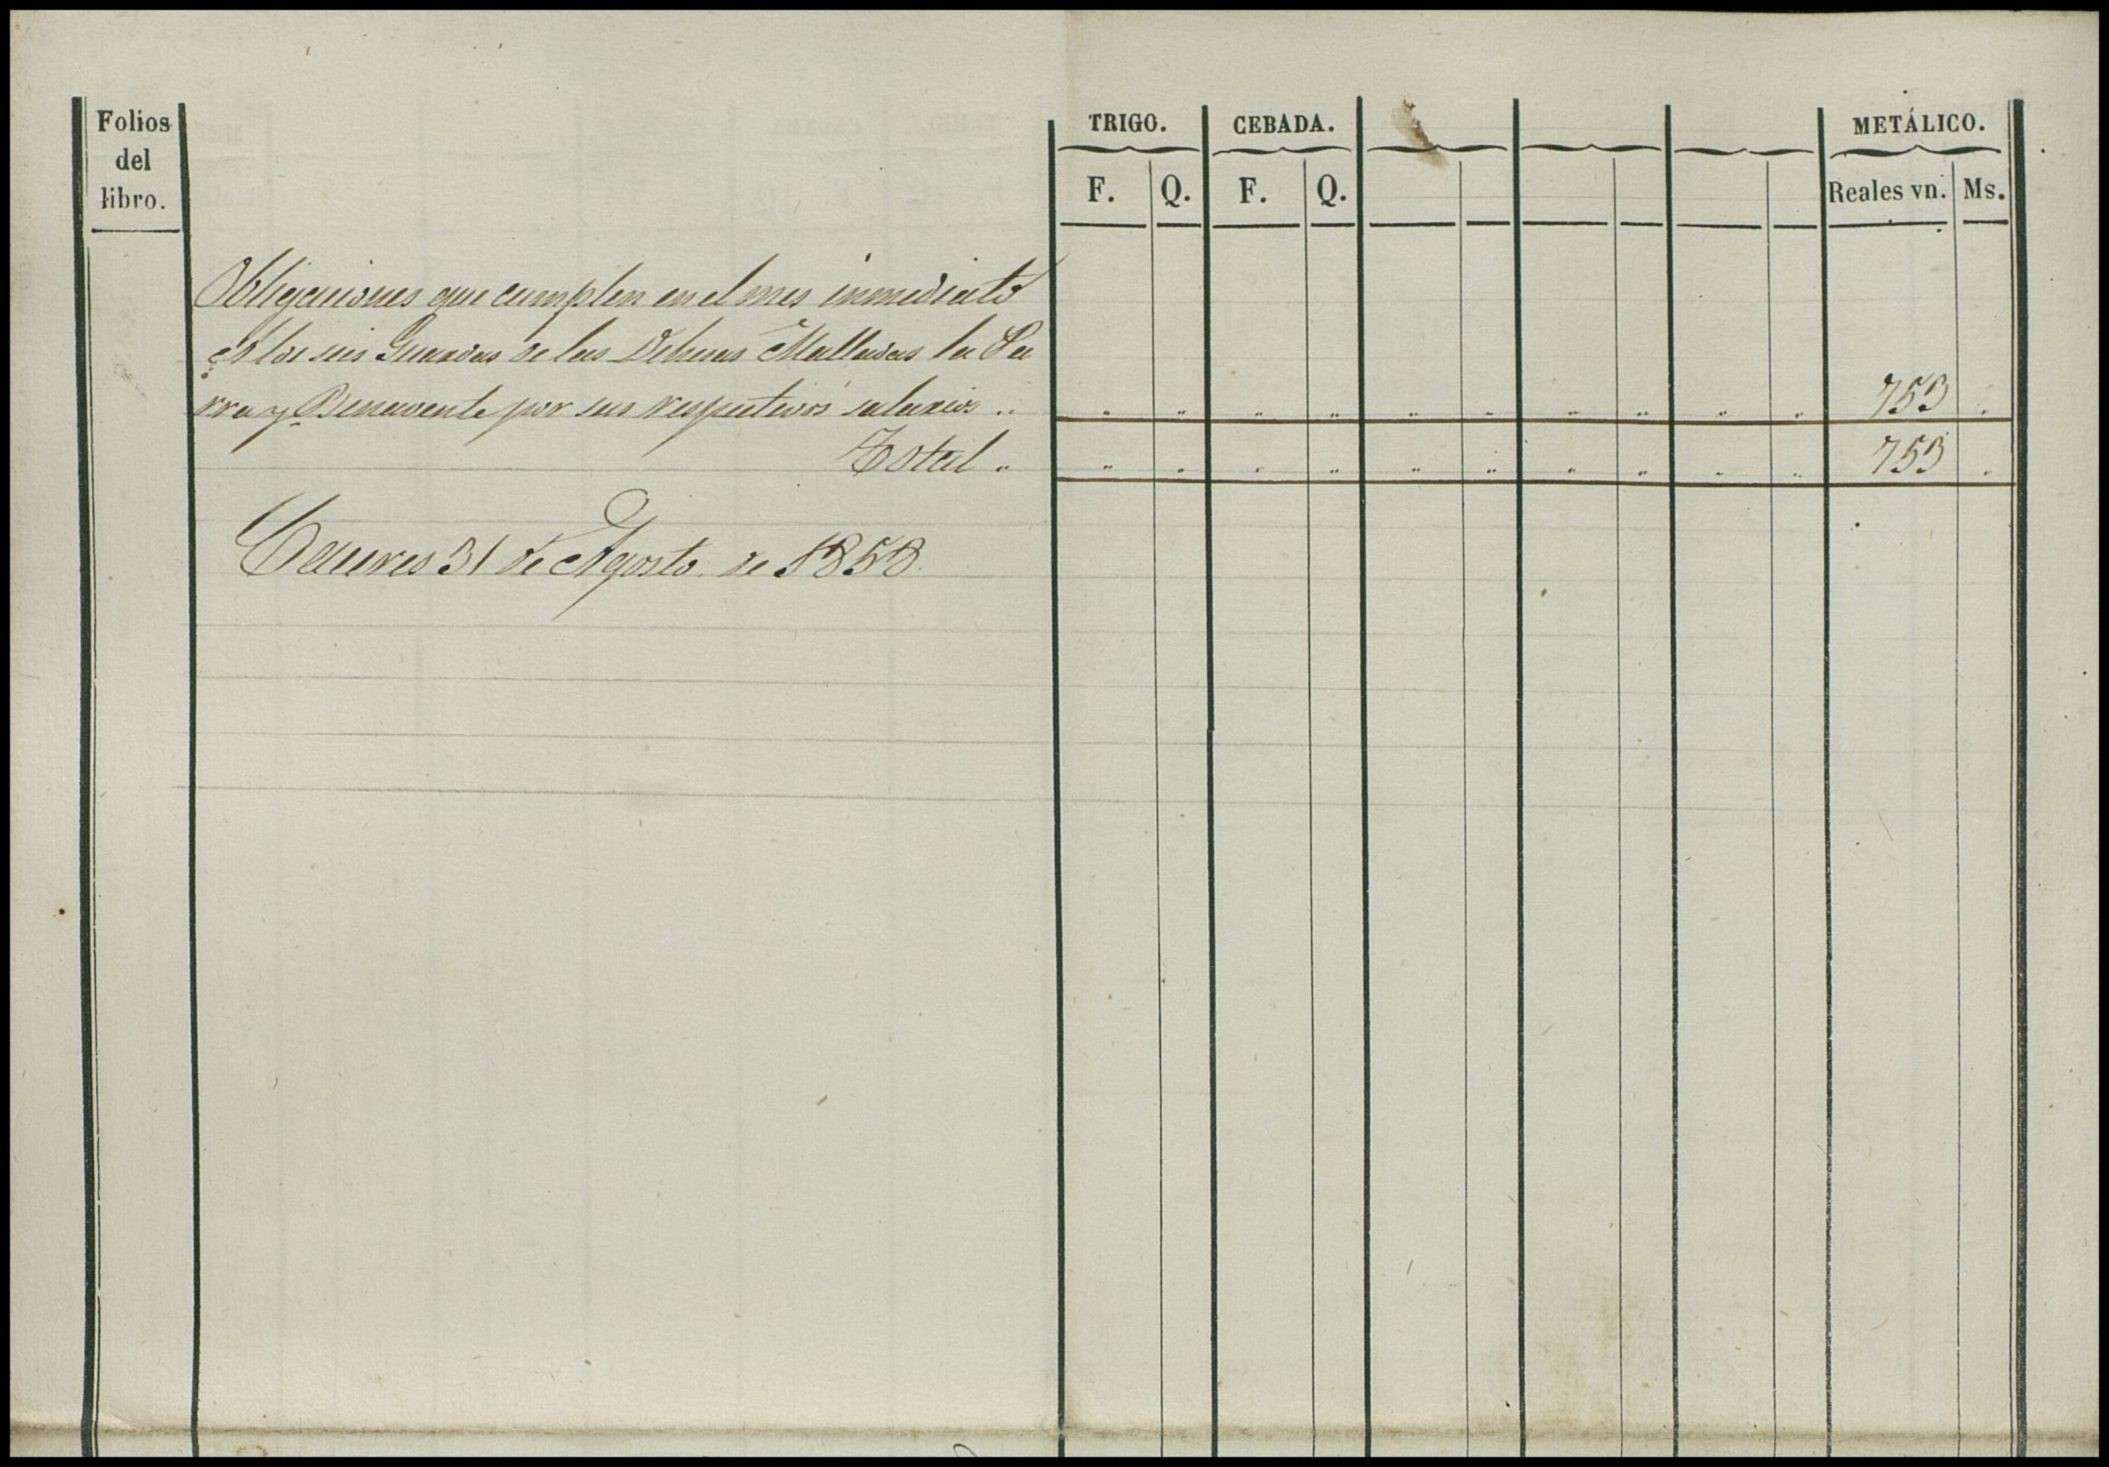 Folios
del
libro.
TRIGO. CEBADA. METÁLICO.
F. Q. F. Q. Reales vn. Ms.
Obligaciones que cumplen en el mes inmediato
A los seis Guardas de las Dehesas Malladas la Pa
rra y Benavente por sus respectivos salarios .. " " " " " " " " " " 753 "
Total " " " " " " " " " " " 753 "
Caceres 31 de Agosto de 1858.